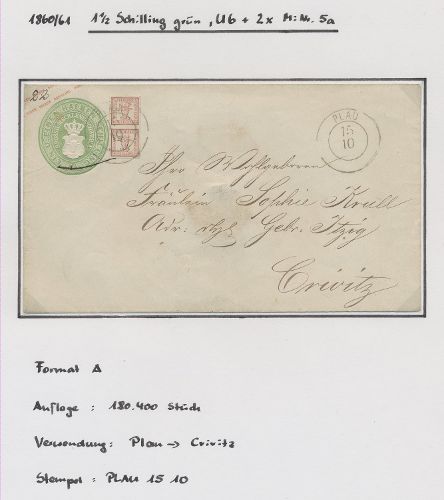 1860/61 1 1/2 Schilling grün, U6 + 2x Mi.Nr. 5a
22
PLAU
15
10
Ihro Wohlgeboren
Fräulein Sophie Krull
Adr: Gebr. Itzig
Crivitz
Format A
Auflage : 180.400 Stück
Versendung: Plau → Crivitz
Stempel : PLAU 15 10